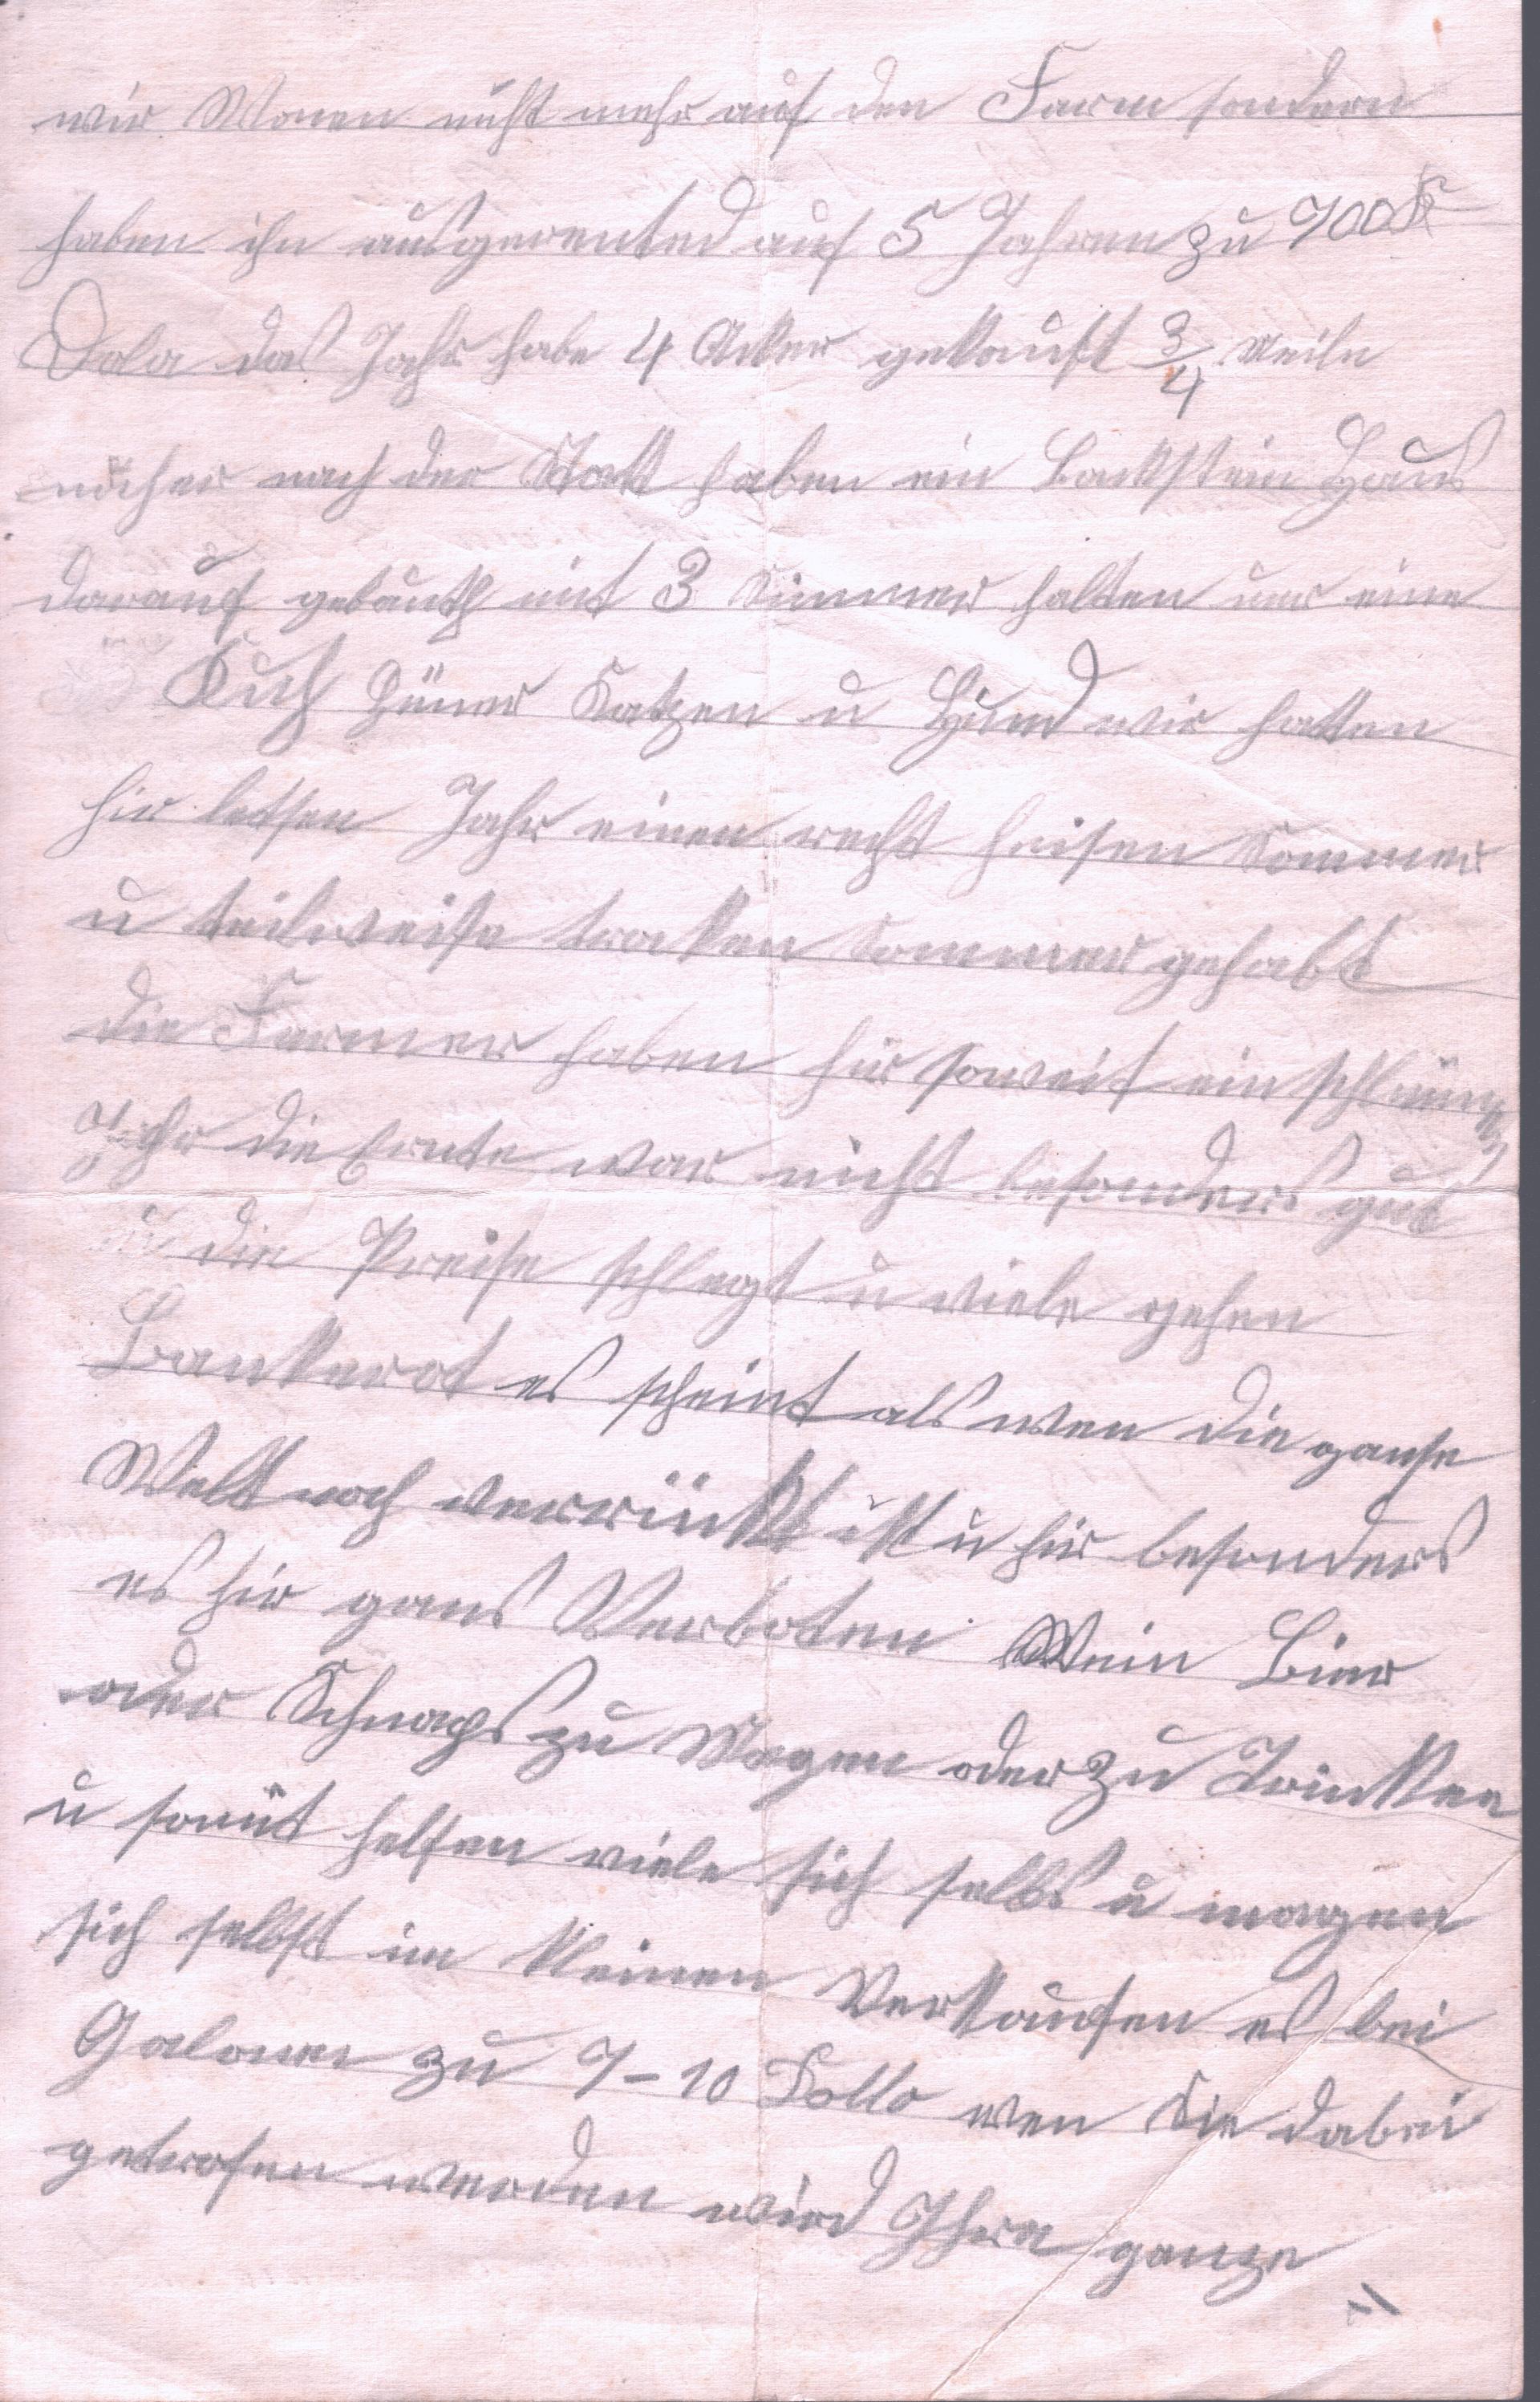 wir Wonen nicht mehr auf den Farm sondern
haben ihn ausgerented auf 5 Jahren zu 700
Dola das Jahr habe 4 Aker gekauft 3/4 Meile
nächer nach der Statt haben ein Backstein Haus
darauf gebauth mit 3 Zimmer halten nur eine
Kuh Hüner Katzen u Hund wir hatten
hir letsen Jahr einen recht heisen Sommer
u teilweise troken Sommer gehabt
die Farmer haben hir soweit ein schlimmes
Jahr die Ernte war nicht besonders gut
u die Preise schlegt u viele gehen
Bankerot es scheint als wen die ganse
Welt noch verrückt ist u hir besonders
es hir gans Verboten Wein Bier
oder Schnaps zu Magen oder zu Trinken
u somit helfen viele sich selbs u magen
sich selbst im kleinen Verkaufen es bei
Galonen zu 7-10 Dollo wen Sie dabei
getrofen werden wird Ihre ganze